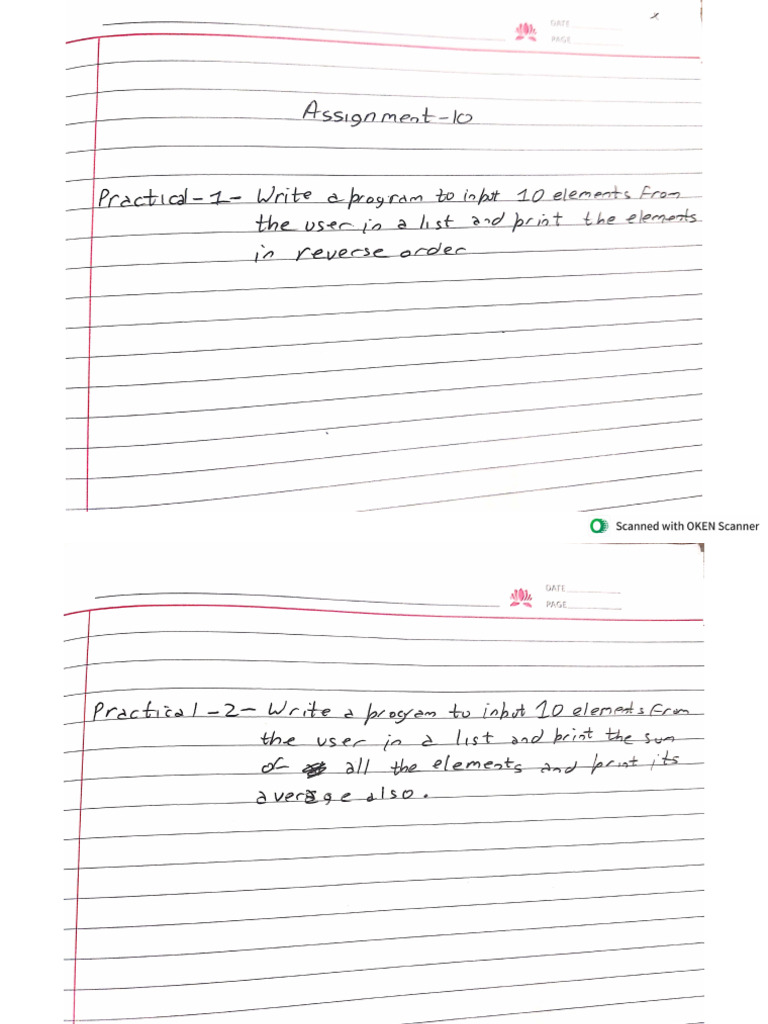 DATE
PAGE
Assignment-10
Practical-1- Write a program to input 10 elements from
the user in a list and print the elements
in reverse order
Scanned with OKEN Scanner
DATE
PAGE
Practical-2- Write a program to input 10 elements from
the user in a list and print the sum
of all the elements and print its
average also.